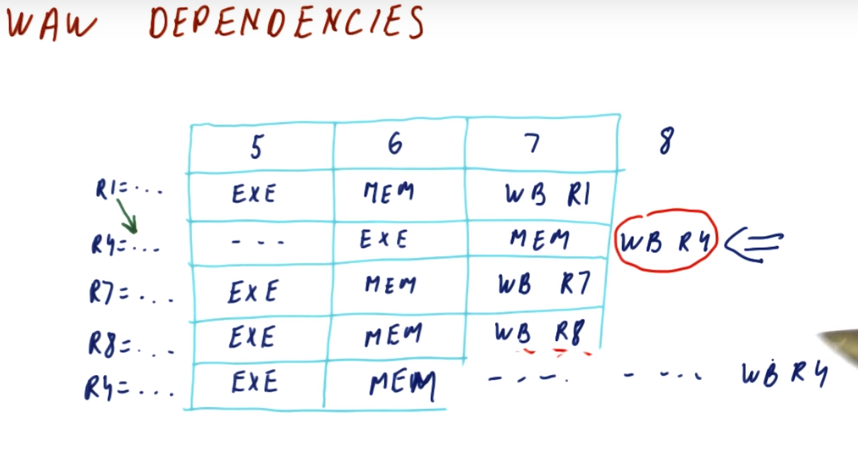 WAW DEPENDENCIES
5 6 7 8
R1=... EXE MEM WB R1
R4=... --- EXE MEM WB R4
R7=... EXE MEM WB R7
R8=... EXE MEM WB R8
R4=... EXE MEM ---. -... WB R4